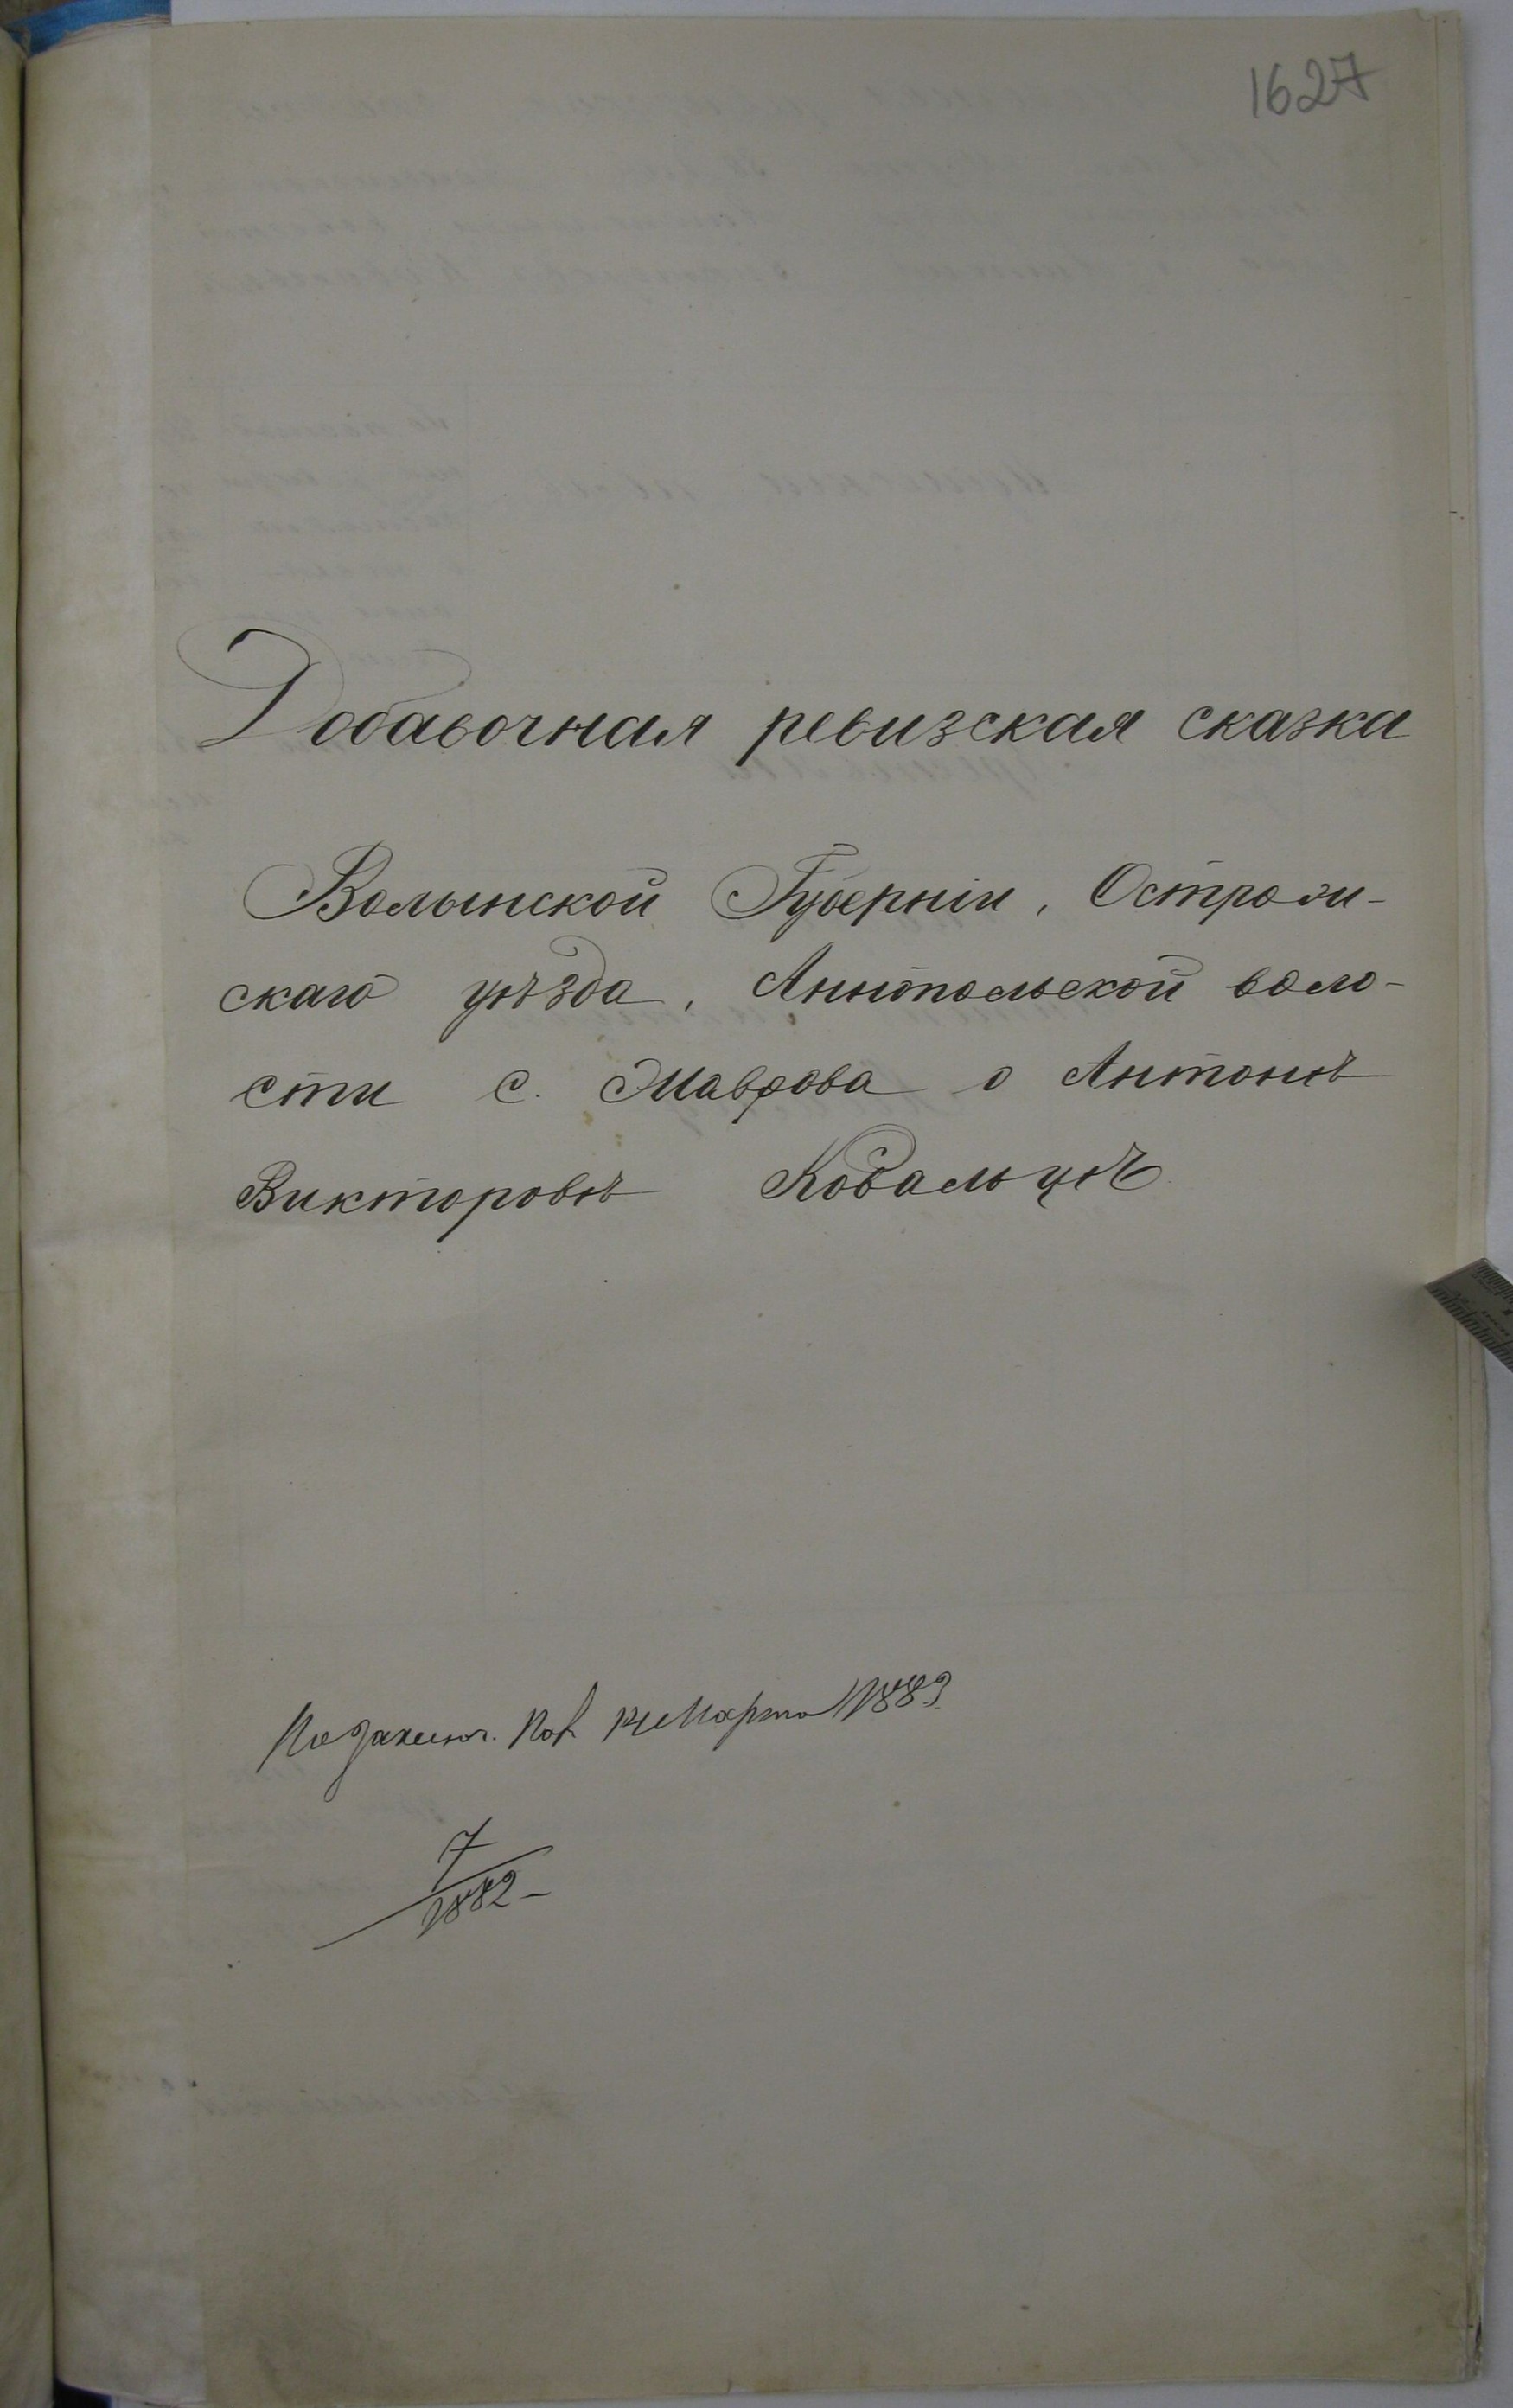 1627
Добавочная ревизская сказка
Волынской Губерніи, Острожи-
скаго уѣзда, Аннопольской воло-
сти с. Маврова о Антонѣ
Викторовѣ Ковальцѣ
По заключ. Пал. 14 Марта 1883
7
1882 –